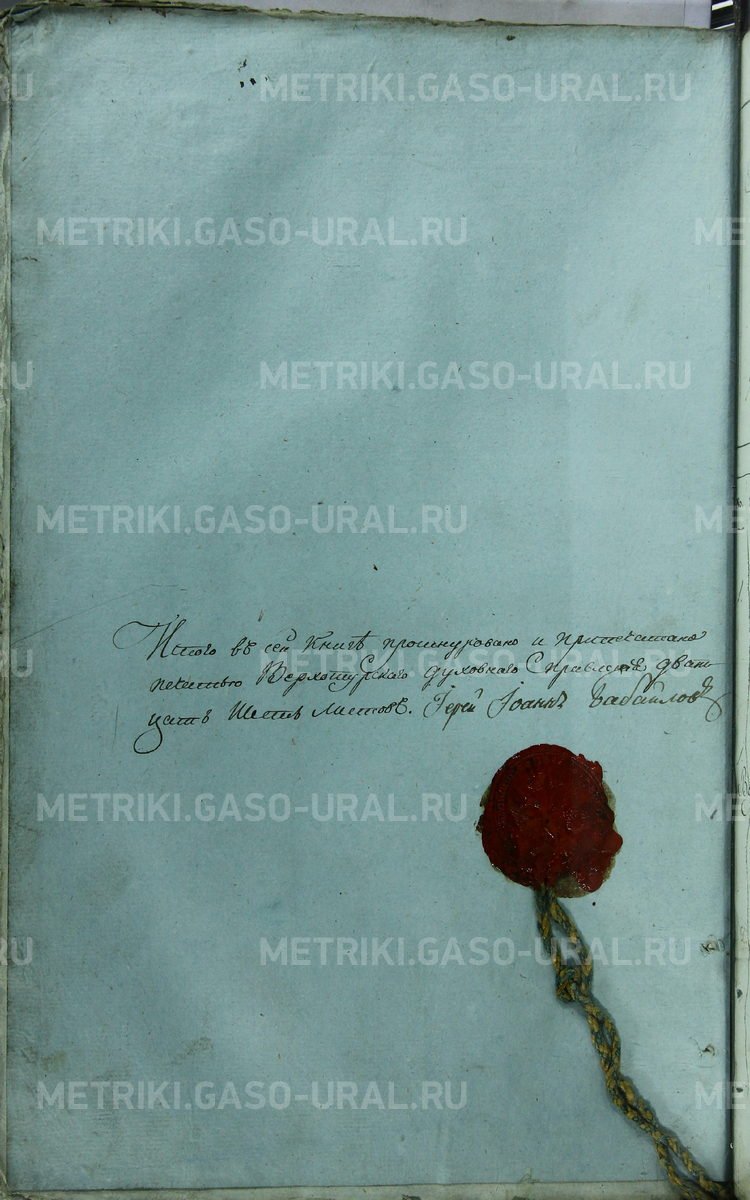 METRIKI.GASO-URAL.RU
METRIKI.GASO-URAL.RU
METRIKI.GASO-URAL.RU
METRIKI.GASO-URAL.RU
Итого въ сей книгѣ прошнуровано и припечатано
печатью Верхотурского духовнаго Правленїя дват
цать шесть листовъ. Іерей Іоаннъ
METRIKI.GASO-URAL.RU
METRIKI.GASO-URAL.RU
METRIKI.GASO-URAL.RU